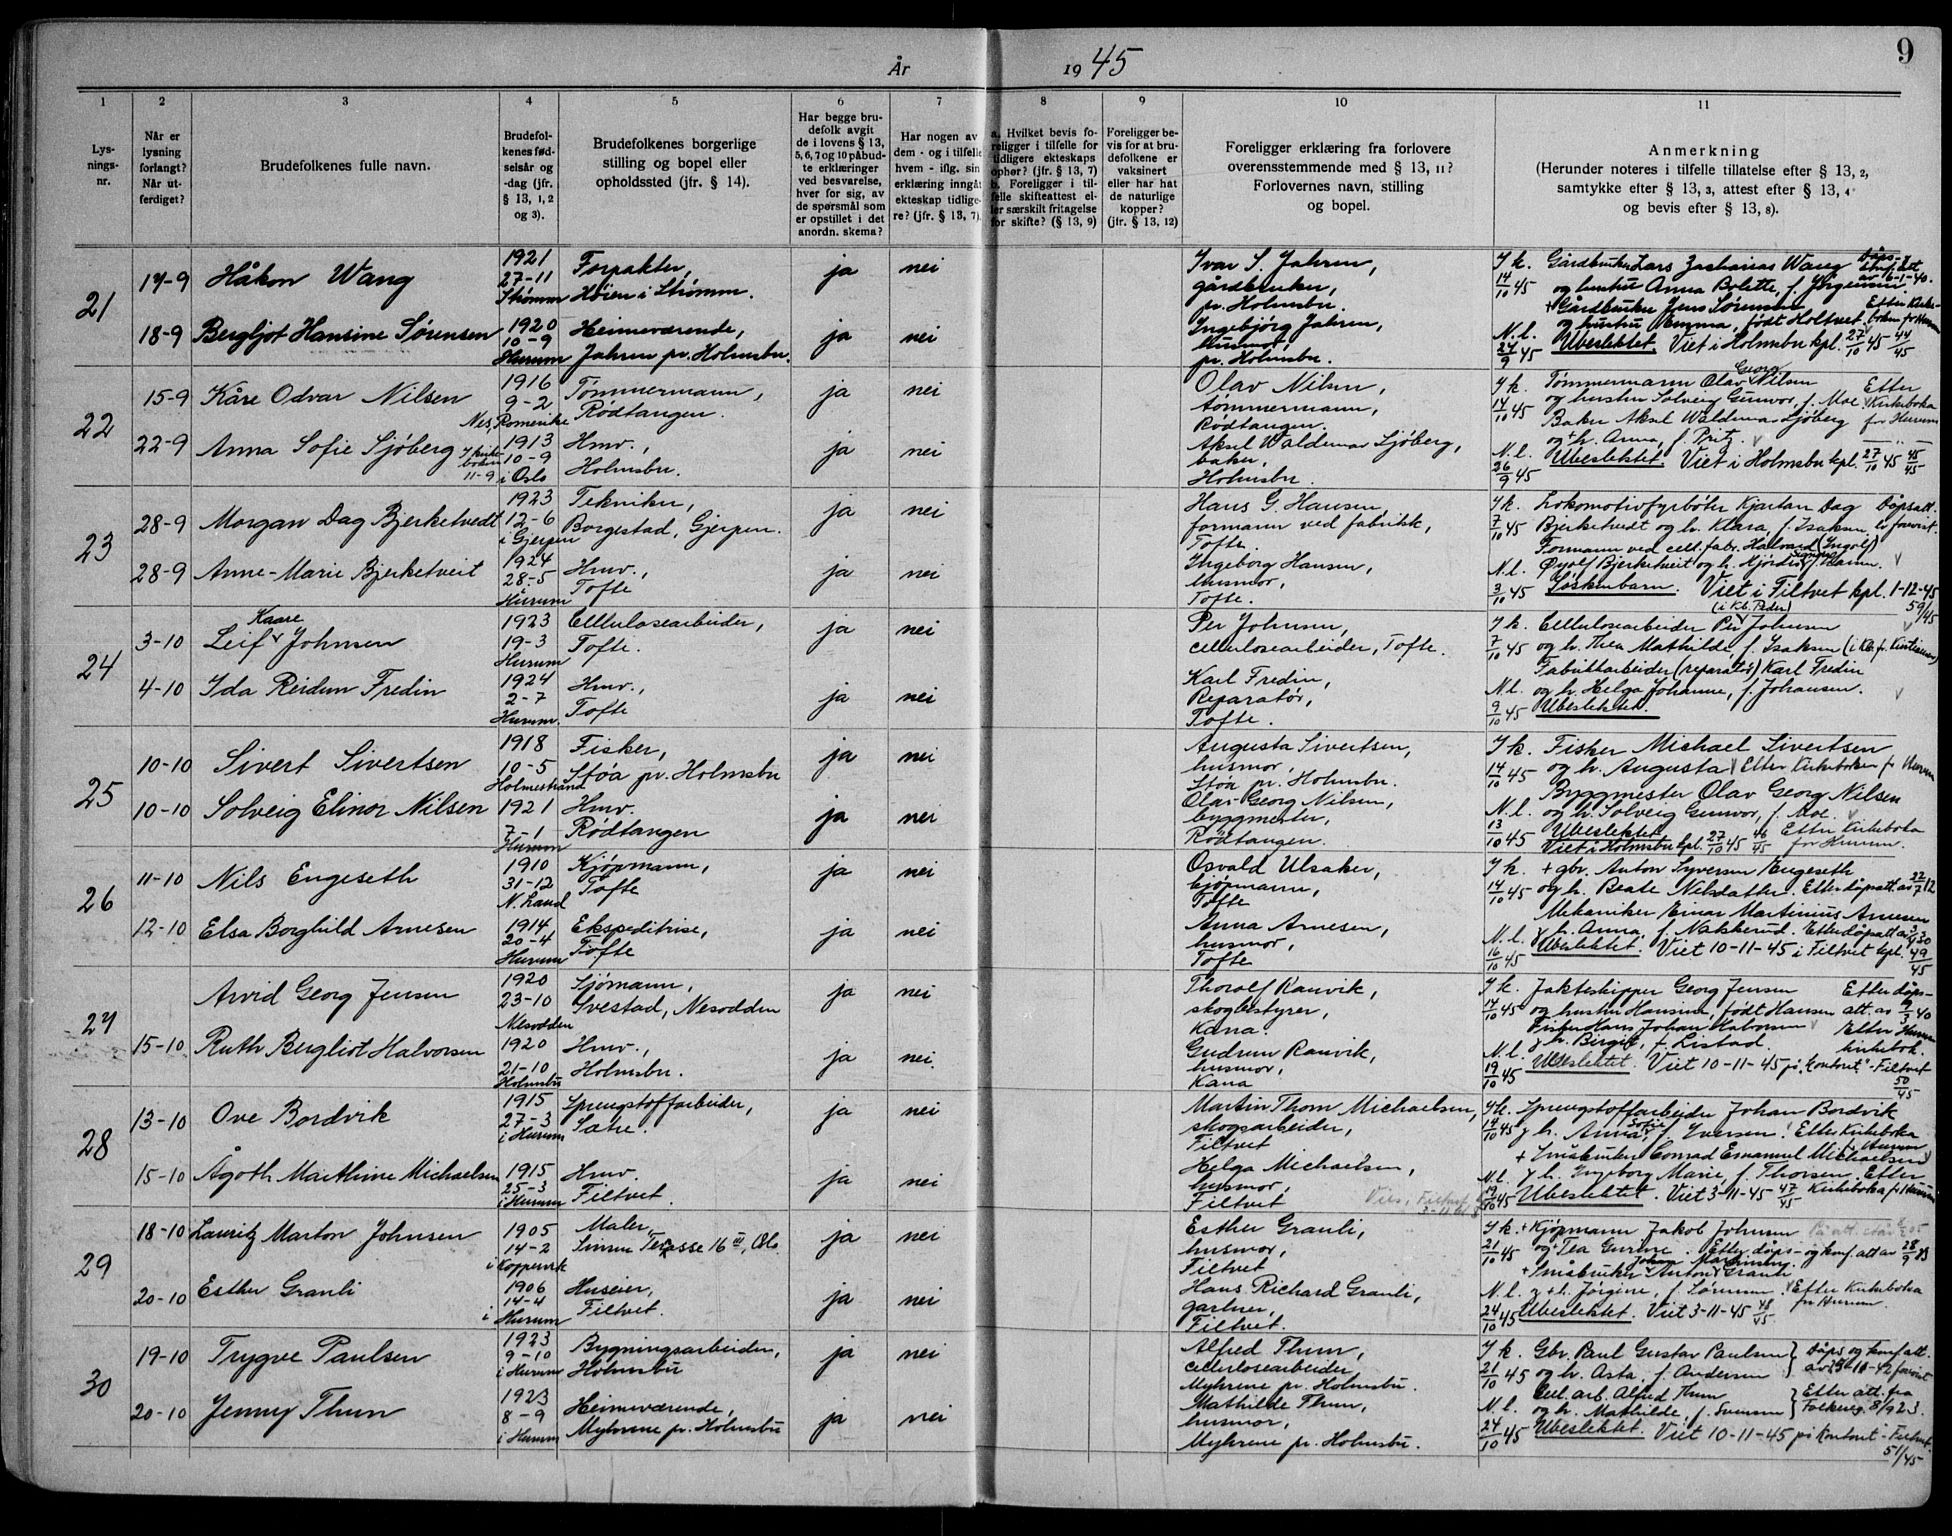 År 1945
9
1 2 3 4 5 6 7 8 9 10 11
Lys-
nings-
nr.
Når er
lysning
forlangt?
Når ut-
ferdiget?
Brudefolkenes fulle navn.
Brudefol-
kenes fød-
selsår og
-dag (jfr.
§ 13, 1, 2
og 3).
Brudefolkenes borgerlige
stilling og bopel eller
opholdssted (jfr. § 14).
Har begge bru-
defolk avgit
de i lovens § 13,
5, 6, 7 og 10 påbud-
te erklæringer
ved besvarelse,
hver for sig, av
de spørsmål som
er opstillet i det
anordn. skema?
Har nogen av
dem - og i tilfelle
hvem - iflg. sin
erklæring inngåt
ekteskap tidlige-
re? (jfr. § 13, 7).
a. Hvilket bevis fo-
religger i tilfelle for
tidligere ekteskaps
ophør? (jfr. § 13, 7)
b. Foreligger i til-
felle skifteattest el-
ler særskilt fritagelse
for skifte? (§ 13, 9)
Foreligger be-
vis for at bru-
defolkene er
vaksinert
eller har hat
de naturlige
kopper?
(jfr. § 13, 12)
Foreligger erklæring fra forlovere
overensstemmende med § 13, 11?
Forlovernes navn, stilling
og bopel.
Anmerkning
(Herunder noteres i tilfelle tillatelse efter § 13, 2,
samtykke efter § 13, 3, attest efter § 13, 4
og bevis efter § 13, 8).
21
14-9 Håkon Wang
1921
27-11
Strømm
Forpakter,
Høien i Strømm.
ja nei
Ivar S. Jahren,
gårdbruker,
pr. Holmsbu.
I k. 14/10 45
Gårdbruker Lars Zacharias Wang
og hustru Anna Bolette, f. Jørgensen
av 6-1-40.
18-9 Bergljot Hansine Sørensen
1920
10-9
Hurum
Heimeværende,
Jahren pr. Holmsbu.
ja nei
Ingebjørg Jahren,
husmor,
pr. Holmsbu.
N. l. 24/9 45
+ Gårdbruker Jens Sørensen
og hustru Emma, født Holtvet. Etter kirke-
boken for Hurum
Ubeslektet. Viet i Holmsbu kpl. 27/10 45 44/45
22
15-9 Kåre Odvar Nilsen
1916
9-2
Nes, Romerike
Tømmermann,
Rødtangen.
ja nei
Olav Nilsen,
tømmermann,
Rødtangen.
I k. 14/10 45
Tømmermann Olav Georg Nilsen
og hustru Solveig Gunvor, f. Moe
Etter
Kirkeboka
for Hurum
22-9 Anna Sofie Sjøberg
11-9
1913
10-9
i Oslo
Hmv.,
Holmsbu.
ja nei
Aksel Waldemar Sjøberg,
baker,
Holmsbu.
N. l. 26/9 45
Baker Aksel Waldemar Sjøberg
og + h. Anna, f. Pritz.
Ubeslektet. Viet i Holmsbu kpl. 27/10 45 45/45
23
28-9 Morgan Dag Bjerketvedt
1923
12-6
i Gjerpen
Tekniker,
Borgestad, Gjerpen.
ja nei
Hans G. Hansen,
formann ved fabrikk,
Tofte
I k. 7/10 45
Lokomotivfyrbøter Kjartan Dag
Bjerketvedt og h. Klara, f. Isaksen
Dåpsatt.
28-9 Anne-Marie Bjerketveit
1924
28-5
Hurum
Hmv.,
Tofte
ja nei
Ingeborg Hansen,
husmor,
Tofte.
N. l. 3/10 45
Formann ved cell. fabr. Halvard (Ingolf)
Øyolf Bjerketveit og h. Hjørdis
Søskenbarn. Viet i Filtvet kpl. 1-12-45
59/45
24
3-10 Leif Kaare Johnsen
1923
19-3
Hurum
Cellulosearbeider,
Tofte.
ja nei
Per Johnsen,
cellulosearbeider, Tofte.
I k. 7/10 45
(i Kb. Peder)
Cellulosearbeider Per Johnsen
og h. Thea Mathilde, f. Isaksen
4-10 Ida Reidun Fredin
1924
2-7
Hurum
Hmv.,
Tofte
ja nei
Karl Fredin,
Reparatør,
Tofte.
N. l. 9/10 45
Fabrikkarbeider (reparatør) Karl Fredin
og h. Helga Johanne, f. Johansen.
Ubeslektet.
25
10-10 Sivert Sivertsen
1918
10-5
Holmestrand
Fisker,
Støa pr. Holmsbu
ja nei
Augusta Sivertsen,
husmor,
Støa pr. Holmsbu.
I k. 14/10 45
Fisker Michael Sivertsen
og h. Augusta Etter Kirkeboken for Hurum
10-10 Solveig Elinor Nilsen
1921
7-1
Hurum
Hmv.
Rødtangen
ja nei
Olav Georg Nilsen,
byggmester,
Rødtangen.
N. l. 13/10 45
Byggmester Olav Georg Nilsen
og h. Solveig Gunvor, f. Moe.
Ubeslektet
Viet i Holmsbu kpl. 27/10 45 46/45
Etter Kirkeboka
for Hurum.
26
11-10 Nils Engeseth
1910
31-12
N. Land
Kjøpmann,
Tofte
ja nei
Osvald Ulsaker,
kjøpmann,
Tofte
I k. 14/10 45
+ gbr. Anton Syversen Engeseth
og h. Beate Nilsdatter. Etter dåpsatt. av 22/7 12
12-10 Elsa Borghild Arnesen
1914
20-4
Hurum
Ekspeditrise,
Tofte
ja nei
Anna Arnesen,
husmor,
Tofte
N. l. 16/10 45
Mekaniker Einar Martinius Arnesen
h. Anna, f. Nakkerud. Etter dåpsatt. av
Ubeslektet. Viet 10-11-45 i Filtvet kpl. 49/45
27
Arvid Georg Jensen
1920
23-10
Nesodden
Sjømann,
Svestad, Nesodden
ja nei
Thorolf Ranvik,
skogbestyrer,
Kana.
I k. 14/10 45
Jakteskipper Georg Jensen
og hustru Hansine, født Hansen
Etter dåps-
att. av
15-10 Ruth Bergliot Halvorsen
1920
21-10
Holmsbu
Hmv.,
Holmsbu.
ja nei.
Gudrun Ranvik,
husmor,
Kana
N. l. 19/10 45
Fisker Hans Johan Halvorsen
og h. Birgit, f. Listad.
Etter Hurum
kirkebok.
Ubeslektet. Viet 10-11-45 på "kontoret" - Filtvet
50/45
28
13-10 Ove Bordvik
1915
27-3
i Hurum
Sprengstoffarbeider,
Sætre.
ja nei
Martin Thom Michaelsen,
skogsarbeider,
Filtvet
I k. 14/10 45
Sprengstoffarbeider Johan Bordvik
g h. Anna Sofie, f. Iversen. Etter Kirkeboka
f. Hurum
15-10 Ågoth Marthine Michaelsen
1915
25-3
i Hurum
Hmv.
Filtvet.
ja nei
Helga Michaelsen,
husmor,
Filtvet
N. l. 19/10 45
+ Småbruker Conrad Emanuel Michaelsen
g h. Ingeborg Marie, f. Thorsen. Etter
Kirkeboka f. Hurum
Ubeslektet. Viet 3-11-45 47/45
29
18-10 Lauritz Marton Johnsen
1905
14-2
i Koppervik
Maler,
Sinsen Terasse 16 III, Oslo
ja nei
Esther Granli,
husmor,
Filtvet
I k. 21/10 45
+ Kjøpmann Jakob Johnsen
og + Tea Gurine. Etter dåps- og konf. att. av
20-10 Esther Granli
1906
14-4
i Hurum
Huseier,
Filtvet.
ja nei
Hans Richard Granli,
gartner,
Filtvet.
N. l. 24/10 45
+ Småbruker Anton Granli
g + h. Jørgine, f. Sørensen. Etter Kirkeboka
for Hurum.
Ubeslektet. Viet 3-11-45 48/45
30
19-10 Trygve Paulsen
1923
9-10
i Hurum
Bygningsarbeider,
Holmsbu
ja nei
Alfred Thun,
cellulosearbeider,
Myhrene pr. Holmsbu.
I k. 21/10 45
Gbr. Paul Gustav Paulsen
og h. Asta, f. Andersen
Dåps og konf. att.
20-10 Jenny Thun
1923
8-9
i Hurum
Heimeværende,
Myhrene pr. Holmsbu
ja nei
Mathilde Thun,
husmor,
Myhrene pr. Holmsbu.
N. l. 24/10 45
Cell. arb. Alfred Thun
og h. Mathilde, f. Svensen
Etter att. fra
Folkereg. 8/9 23.
Ubeslektet. Viet 10-11-45 på kontoret - Filtvet.
51/45